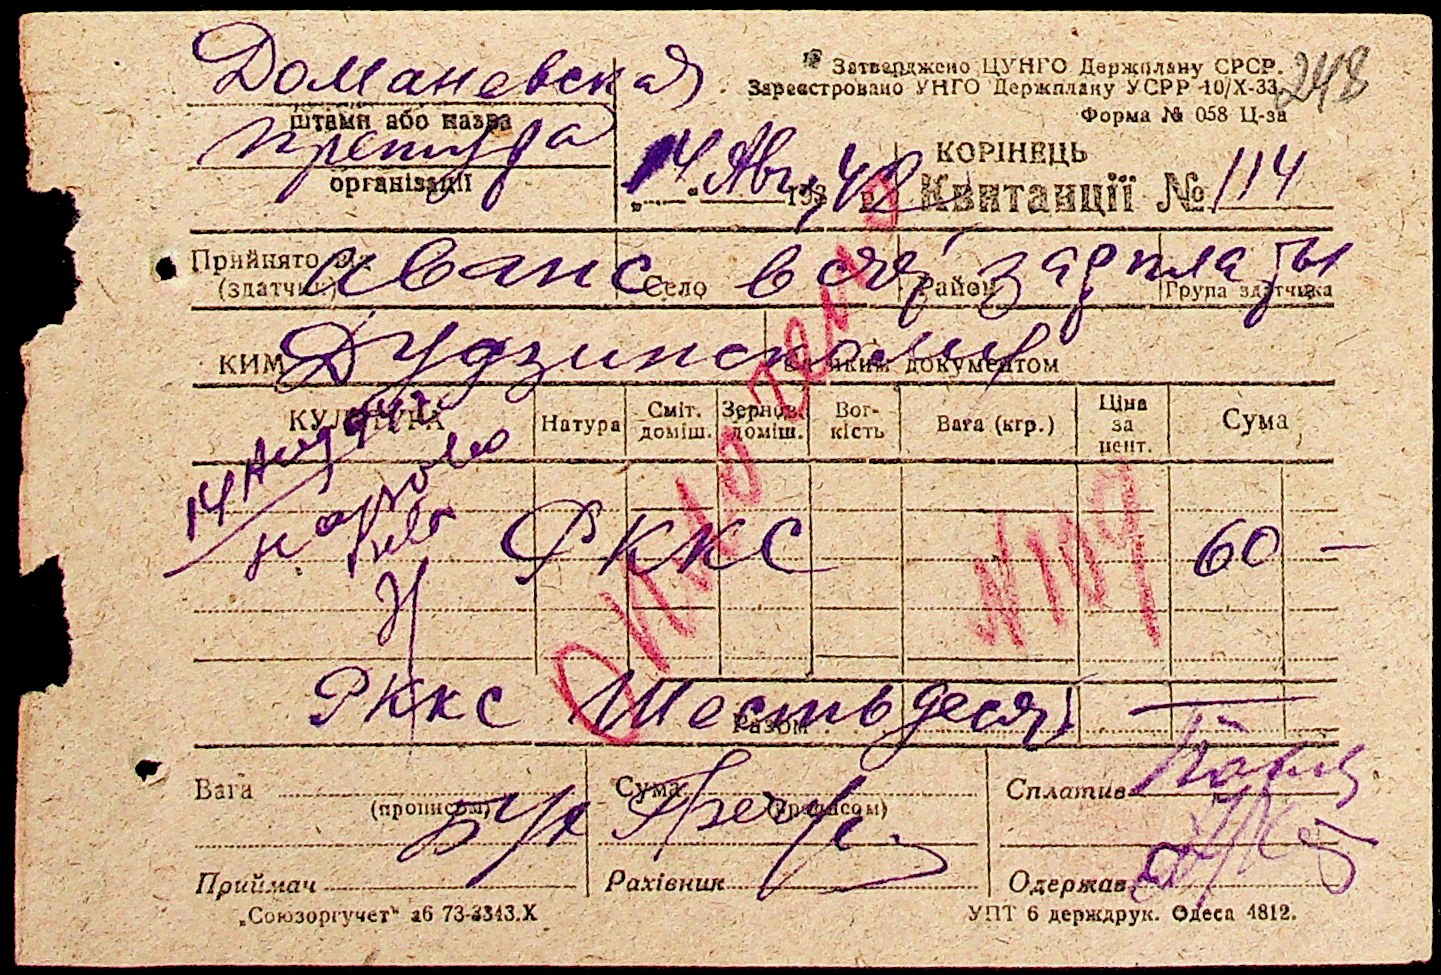 Доманевская
Затверджено ЦУНГО Держплану СРСР.
Зареєстровано УНГО Держплану УСРР 10/X-33
248
Форма № 058 Ц-за
штамп або назва
претура
організації
14 Авг. 193 42 г.
КОРІНЕЦЬ
Квитанції № 114
Прийнято від
(здатчик)
аванс
Село
в счет
Район
зарплаты
Група здатчика
КИМ Дудзинскому
яким документом
КУЛЬТУРА
Натура
Сміт. доміш.
Зернов. доміш.
Вог-кість
Вага (кгр.)
Ціна за цент.
Сума
14
РККС
60 —
Оплочено
N 109
РККС Шестьдесят
Разом
Вага
(прописом)
Сума
(прописом)
Сплатив
Бух
Приймач
Рахівник
Одержав
„Союзоргучет“ 16 73-3343.X
УПТ 6 держдрук. Одеса 4812.